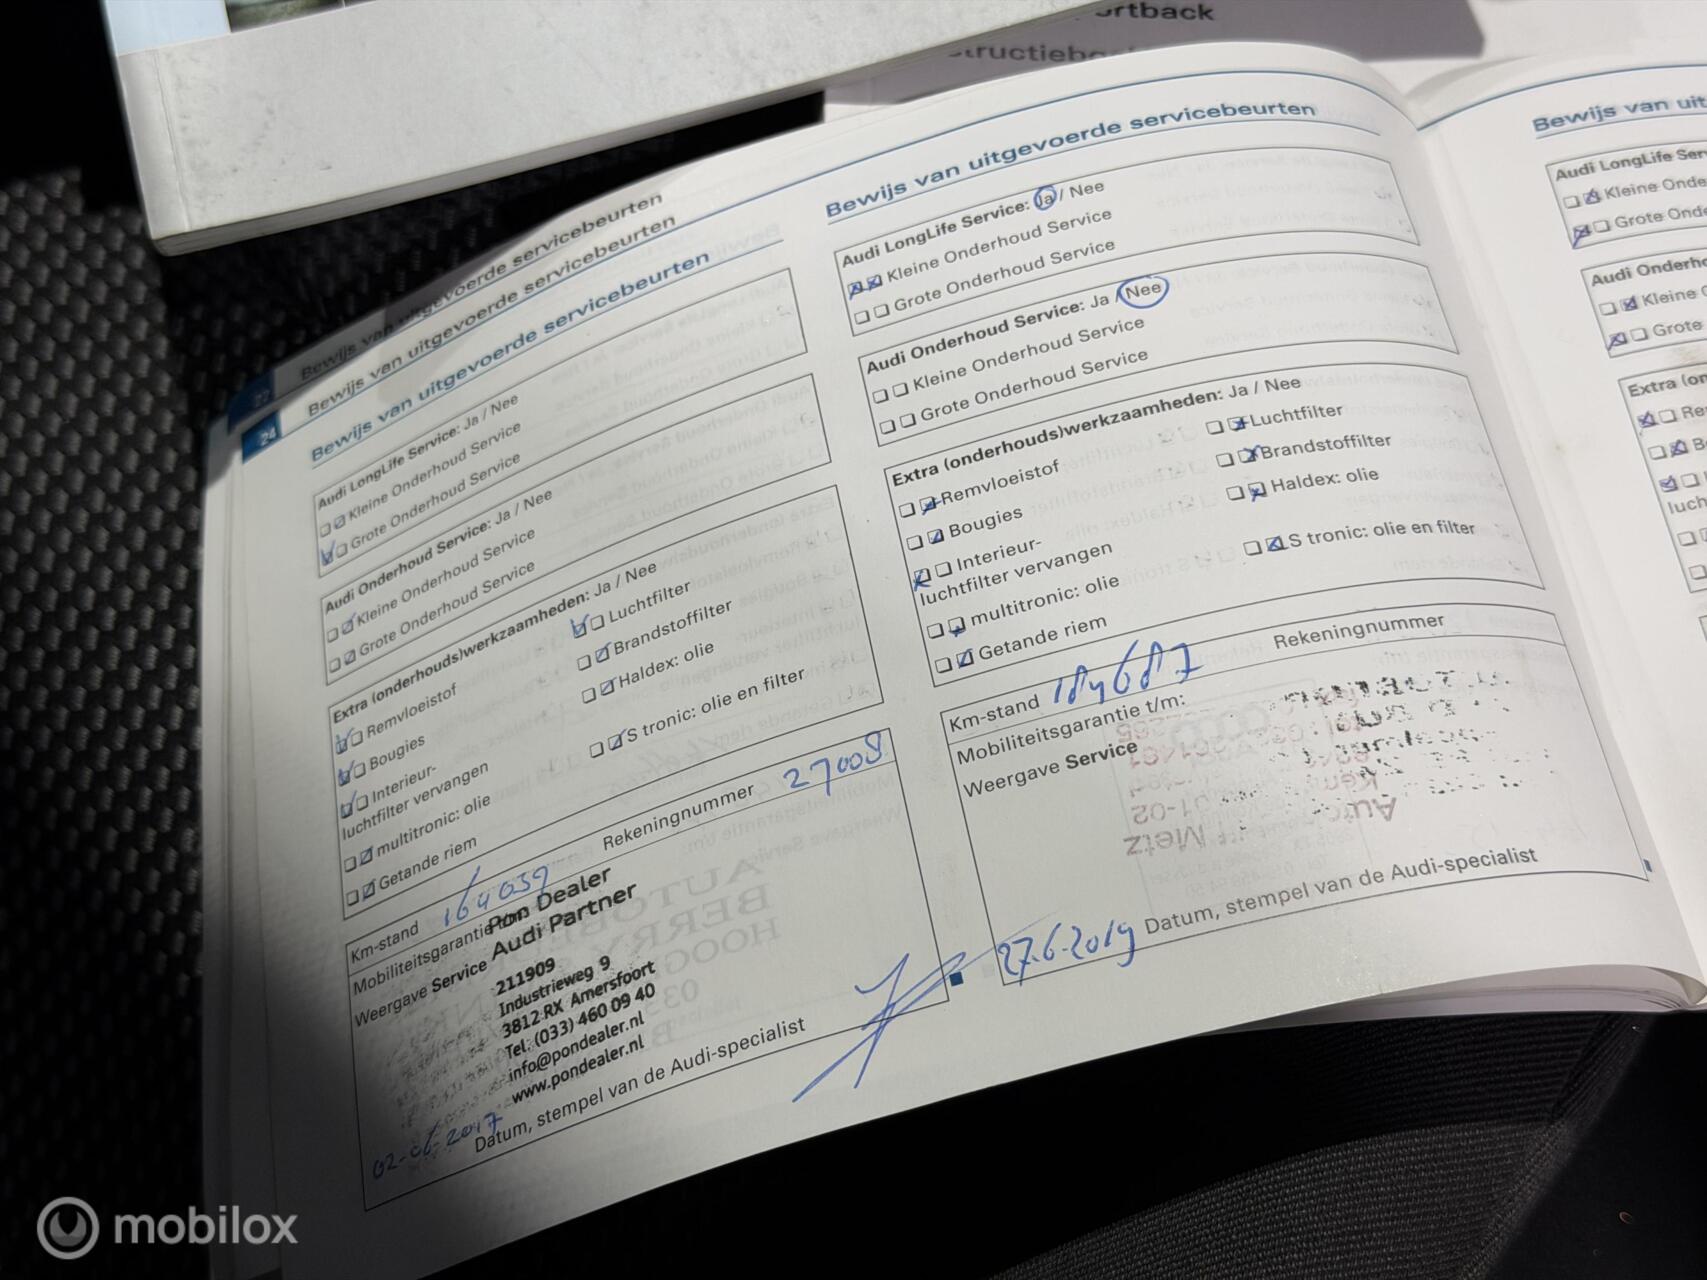 Bewijs van uitgevoerde servicebeurten
27
Bewijs van uitgevoerde servicebeurten
24
Bewijs van uitgevoerde servicebeurten
Audi LongLife Service: Ja / Nee
Kleine Onderhoud Service
Grote Onderhoud Service
Audi Onderhoud Service: Ja / Nee
Kleine Onderhoud Service
Grote Onderhoud Service
Extra (onderhouds)werkzaamheden: Ja / Nee
Remvloeistof
Luchtfilter
Bougies
Brandstoffilter
Interieur-
luchtfilter vervangen
Haldex: olie
multitronic: olie
S tronic: olie en filter
Getande riem
Km-stand 164039
Rekeningnummer 27008
Mobiliteitsgarantie t/m:
Weergave Service
Pon Dealer
Audi Partner
211909
Industrieweg 9
3812 RX Amersfoort
Tel. (033) 460 09 40
info@pondealer.nl
www.pondealer.nl
02-06-2017
Datum, stempel van de Audi-specialist
Bewijs van uitgevoerde servicebeurten
Audi LongLife Service: Ja / Nee
Kleine Onderhoud Service
Grote Onderhoud Service
Audi Onderhoud Service: Ja / Nee
Kleine Onderhoud Service
Grote Onderhoud Service
Extra (onderhouds)werkzaamheden: Ja / Nee
Remvloeistof
Luchtfilter
Bougies
Brandstoffilter
Interieur-
luchtfilter vervangen
Haldex: olie
multitronic: olie
S tronic: olie en filter
Getande riem
Km-stand 184687
Rekeningnummer
Mobiliteitsgarantie t/m:
Weergave Service
27-6-2019
Datum, stempel van de Audi-specialist
Bewijs van uit
Audi LongLife Ser
Kleine Onde
Grote Ond
Audi Onderho
Kleine
Grote
Extra (on
Re
B
luch
mobilox